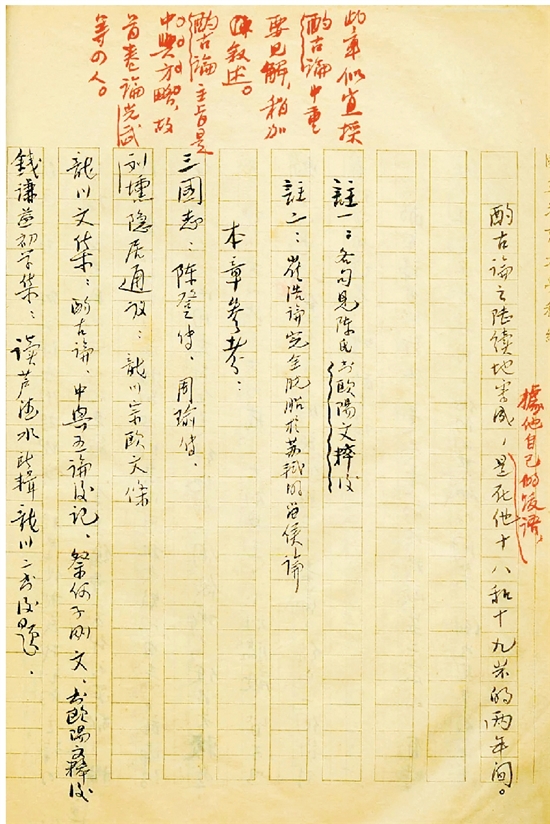 此章似宜採
酌古論中重
要見解，稍加
敘述。
酌古論主旨是
中興方略，故
首卷論光武
等四人。
據他自己的後語，
酌古論之陸續地寫成，是在他十八和十九歲的两年间。
註一：各句見陳氏书歐陽文粹後
註二：崔浩論完全脱胎於苏軾的留侯論
本章參考：
三國志：陳登傳、周瑜傳、
刘壎隐居通议：龍川宗歐文條
龍川文集：酌古論、中興五論後記、祭何子刚文、书歐陽文粹後
錢謙益初学集：读芦德水所輯龍川二书後題、